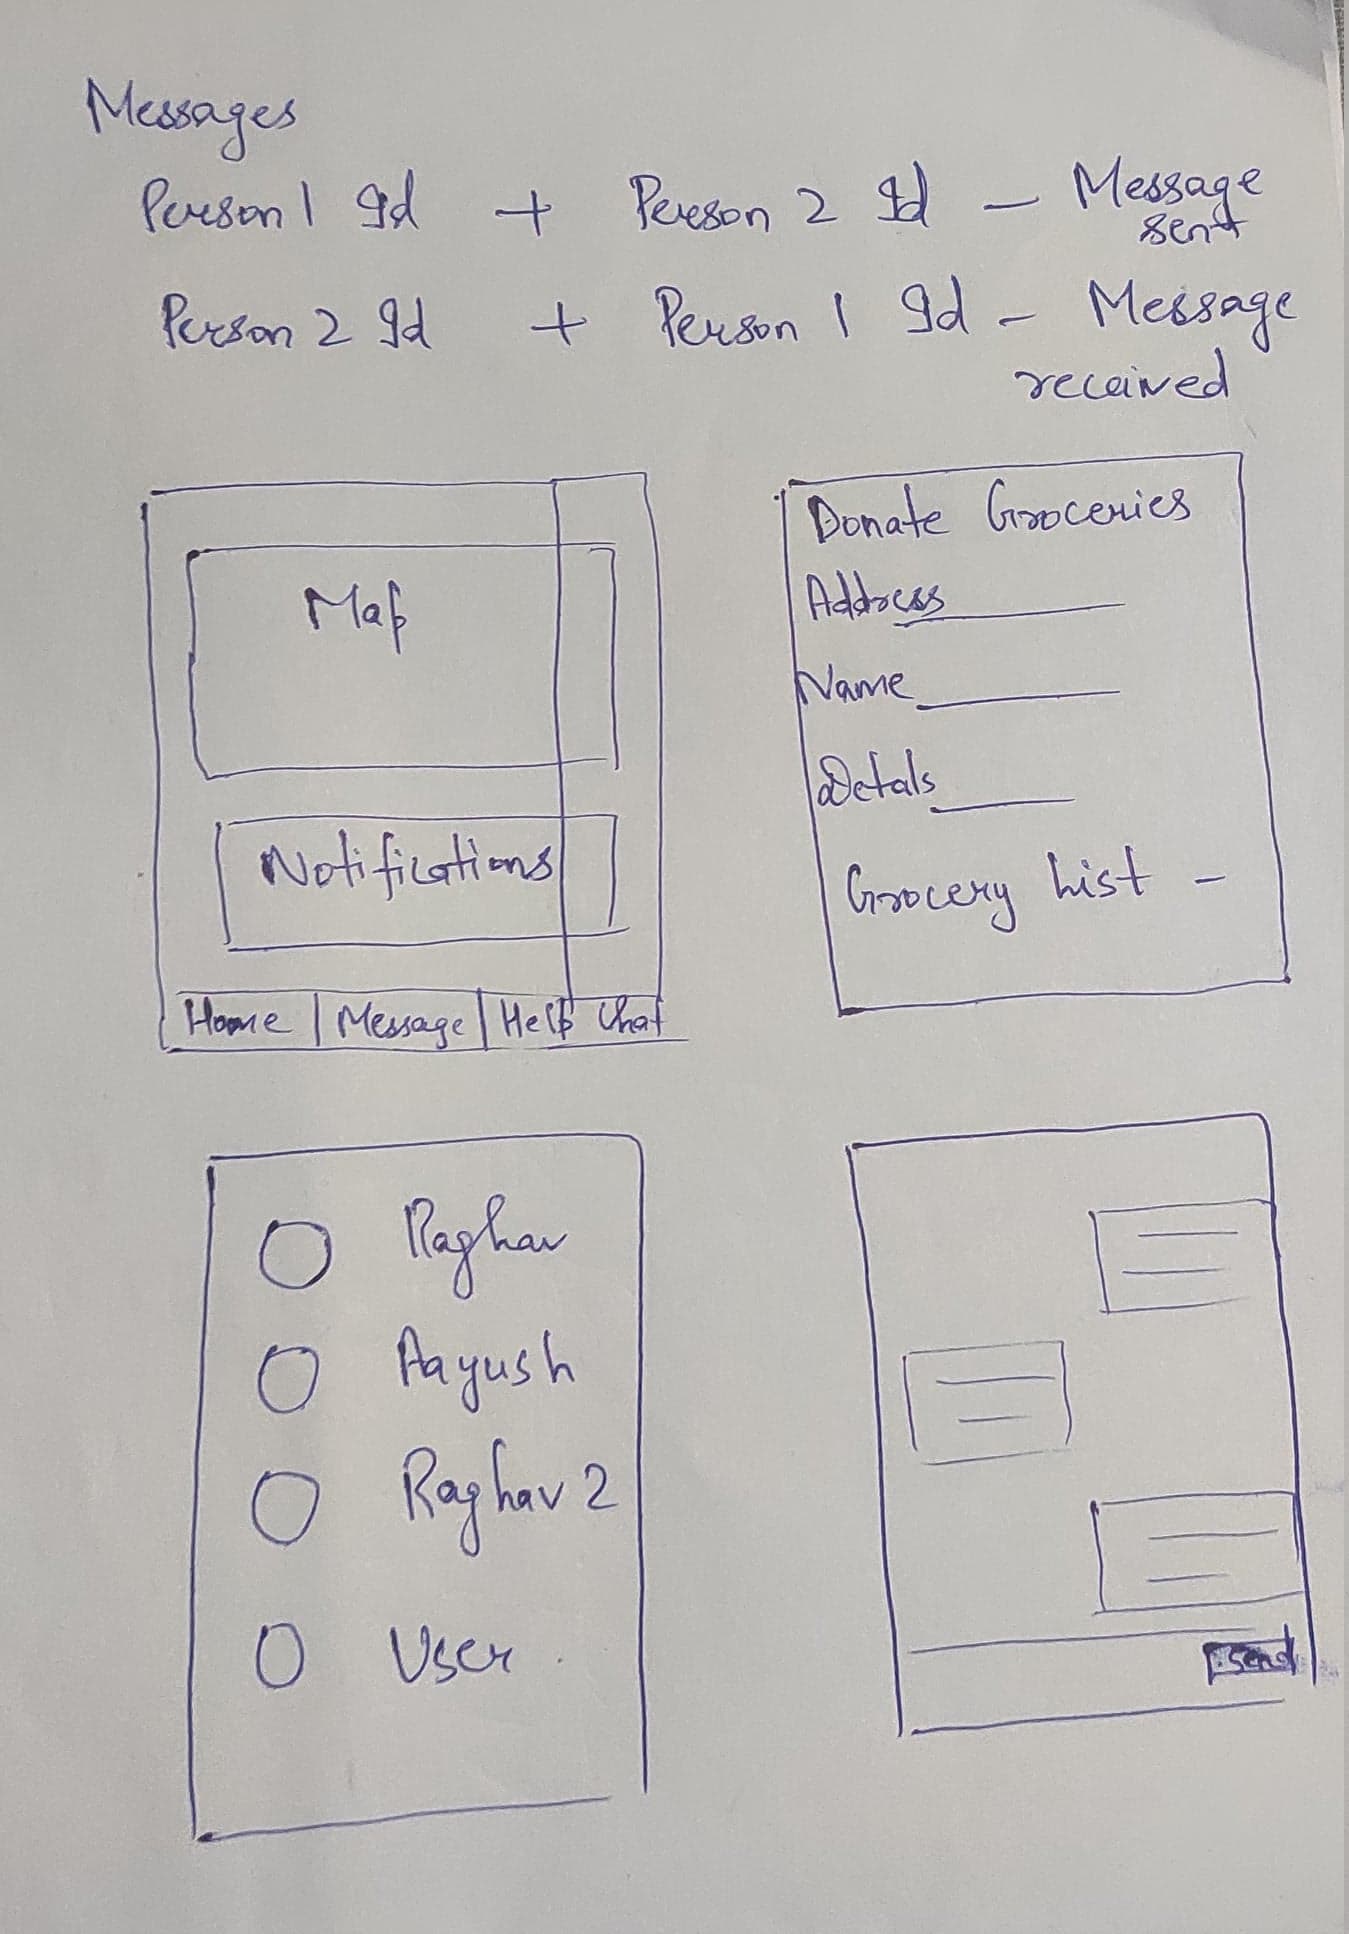 Messages
Person 1 Id + Person 2 Id - Message
sent
Person 2 Id + Person 1 Id - Message
received
Map
Notifications
Home | Message | Help Chat
Donate Groceries
Address
Name
Detals
Grocery List -
Raghav
Aayush
Raghav 2
User
Send